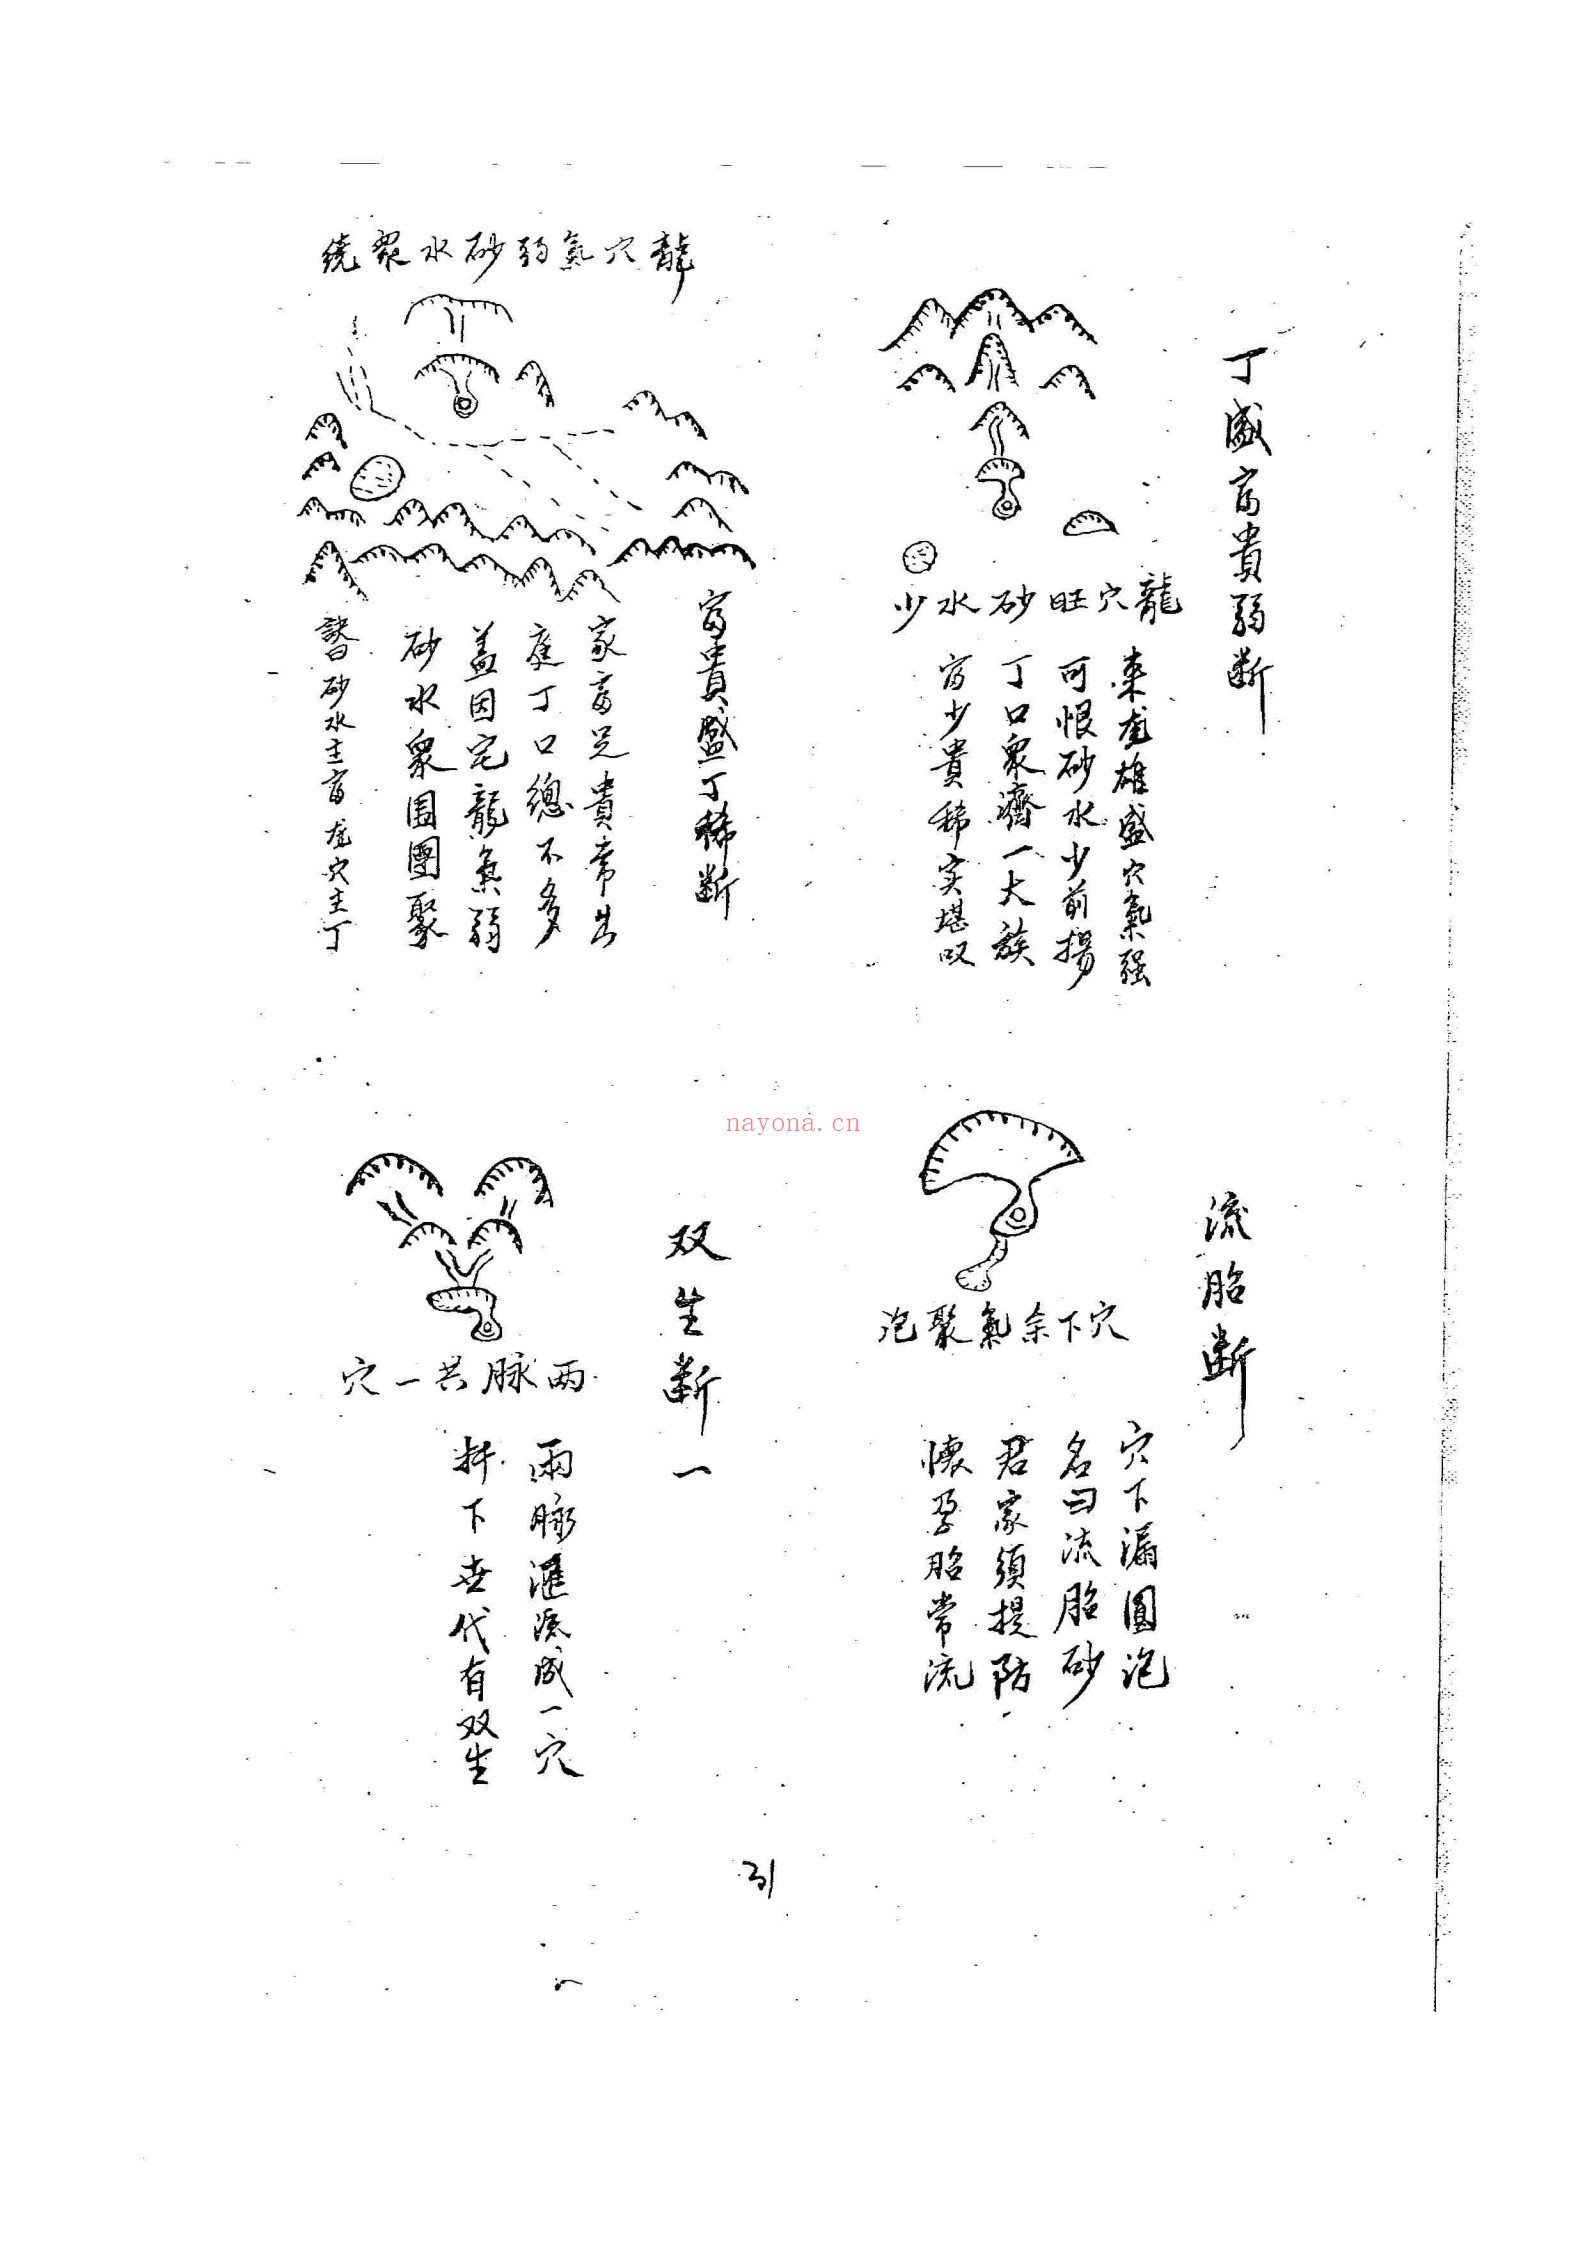 丁盛富貴弱断
龍穴旺砂水少
来龙雄盛穴氣强
可恨砂水少前揚
丁口衆濟一大族
富少貴稀实堪叹
龍穴氣弱砂水眾繞
富貴盛丁稀断
家富足貴常出
庭丁口總不多
盖因宅龍氣弱
砂水衆围團聚
訣曰砂水主富龙穴主丁
流胎断
穴下余氣聚泡
穴下漏圓泡
名曰流胎砂
君家須提防
懷孕胎常流
双生断一
两脉共一穴
兩脉滙源成一穴
扦下世代有双生
nayona.cn
31